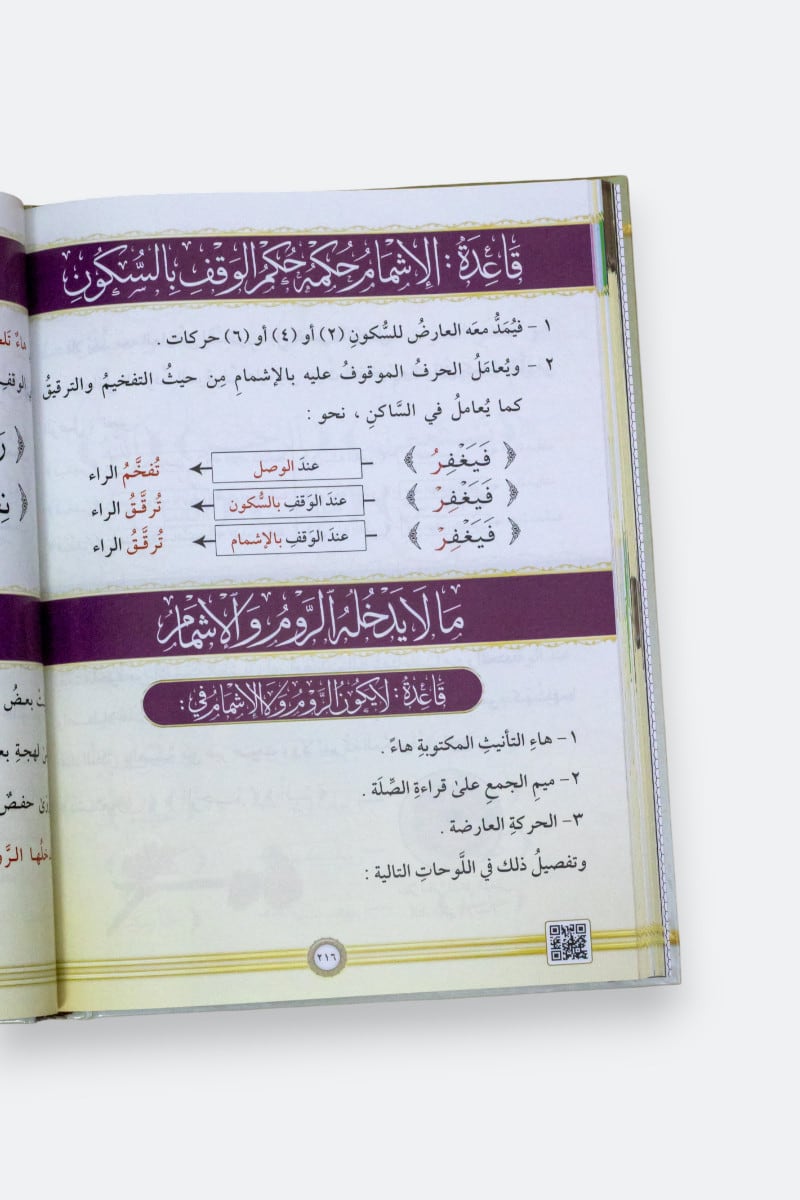 قَاعِدَةُ : الإِشْمَامُ حُكْمُهُ حُكْمُ الوَقْفِ بِالسُّكُونِ
١ - فيُمَدُّ معَه العارضُ للسُّكونِ (٢) أو (٤) أو (٦) حركات .
٢ - ويُعامَلُ الحرفُ الموقوفُ عليه بالإشمامِ مِن حيثُ التفخيمُ والترقيقُ
كما يُعاملُ في السَّاكنِ ، نحو :
﴿ فَيَغْفِرُ ﴾ عندَ الوصل تُفخَّمُ الراء
﴿ فَيَغْفِرْ ﴾ عندَ الوَقفِ بالسُّكون تُرقَّقُ الراء
﴿ فَيَغْفِرْ ﴾ عندَ الوَقفِ بالإشمام تُرقَّقُ الراء
مَا لَا يَدْخُلُهُ الرَّوْمُ وَالإِشْمَامُ
قَاعِدَةُ : لَا يَكُونُ الرَّوْمُ وَلَا الإِشْمَامُ فِي :
١- هاءِ التأنيثِ المكتوبةِ هاءً .
٢- ميمِ الجمعِ علىٰ قراءةِ الصِّلَة .
٣- الحركةِ العارضة .
وتفصيلُ ذلك في اللَّوحاتِ التالية :
٢١٦